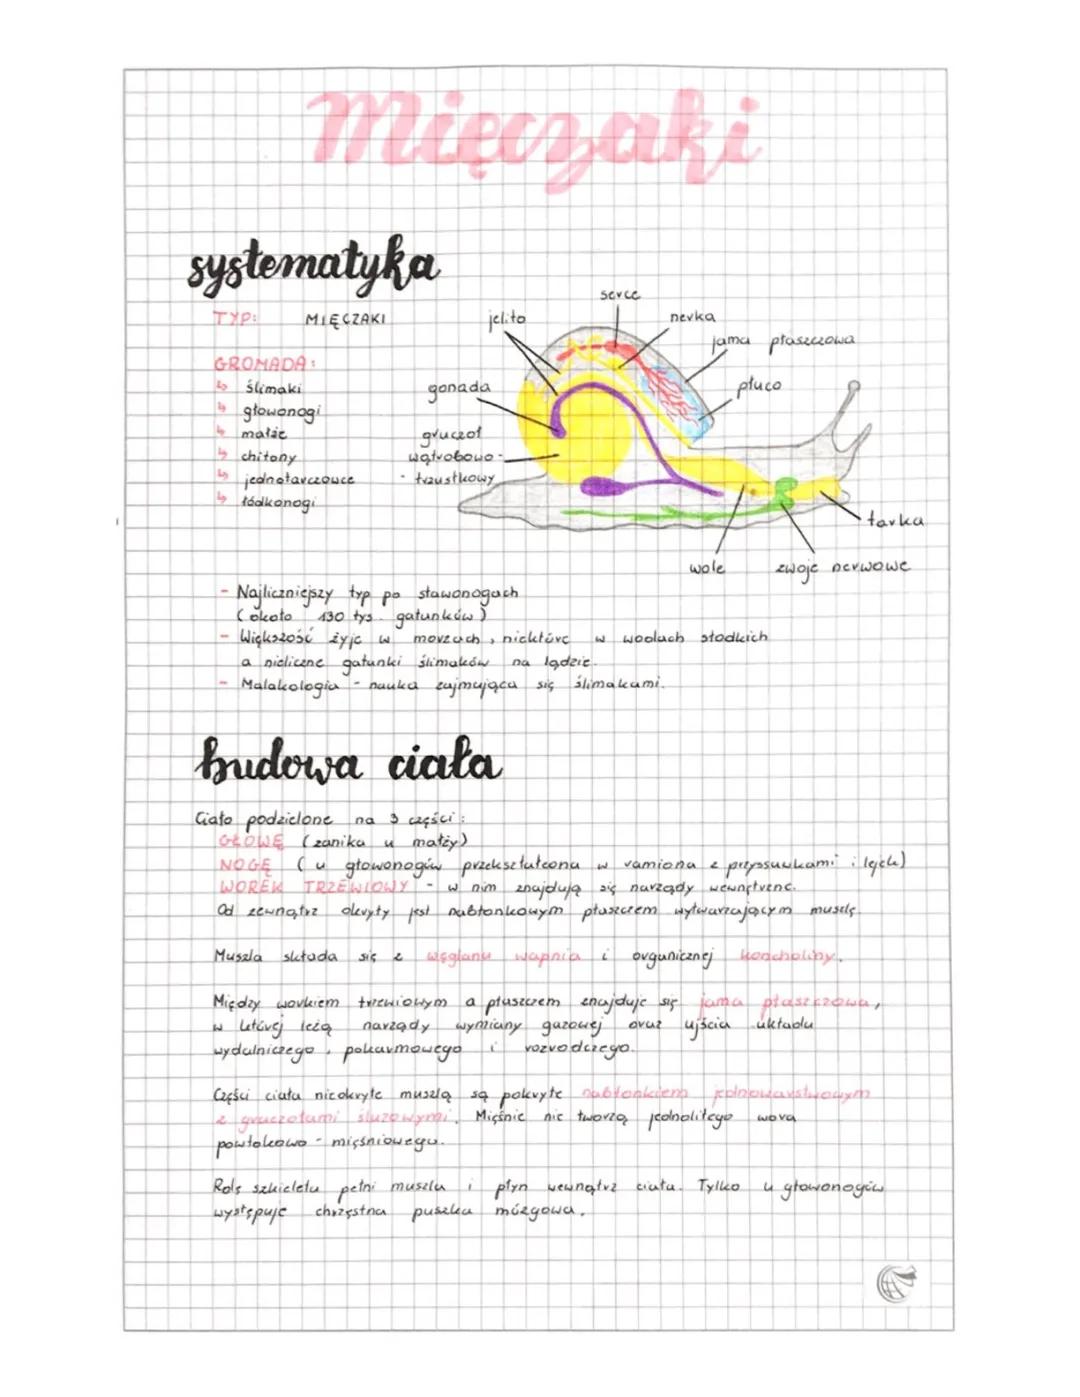 Mięczaki
systematyka
TYP: MIĘCZAKI
GROMADA:
↳ ślimaki
↳ głowonogi
↳ małże
↳ chitony
↳ jednotarczowce
↳ łódkonogi
serce
jelito
nerka
jama płaszczowa
gonada
płuco
gruczoł
wątrobowo-
- trzustkowy
tarka
wole
zwoje nerwowe
- Najliczniejszy typ po stawonogach
(około 130 tys. gatunków)
- Większość żyje w morzach, niektóre w wodach słodkich
a nieliczne gatunki ślimaków na lądzie.
- Malakologia - nauka zajmująca się ślimakami.
budowa ciała
Ciało podzielone na 3 części:
GŁOWĘ (zanika u małży)
NOGĘ (u głowonogów przekształcona w ramiona z przyssawkami i lejek)
WOREK TRZEWIOWY - w nim znajdują się narządy wewnętrzne.
Od zewnątrz okryty jest nabłonkowym płaszczem wytwarzającym muszlę.
Muszla składa się z węglanu wapnia i organicznej koncholiny.
Między workiem trzewiowym a płaszczem znajduje się jama płaszczowa,
w której leżą narządy wymiany gazowej oraz ujścia układu
wydalniczego, pokarmowego i rozrodczego.
Części ciała nieokryte muszlą są pokryte nabłonkiem jednowarstwowym
z gruczołami śluzowymi. Mięśnie nie tworzą jednolitego wora
powłokowo - mięśniowego.
Rolę szkieletu pełni muszla i płyn wewnątrz ciała. Tylko u głowonogów
występuje chrzęstna puszka mózgowa.